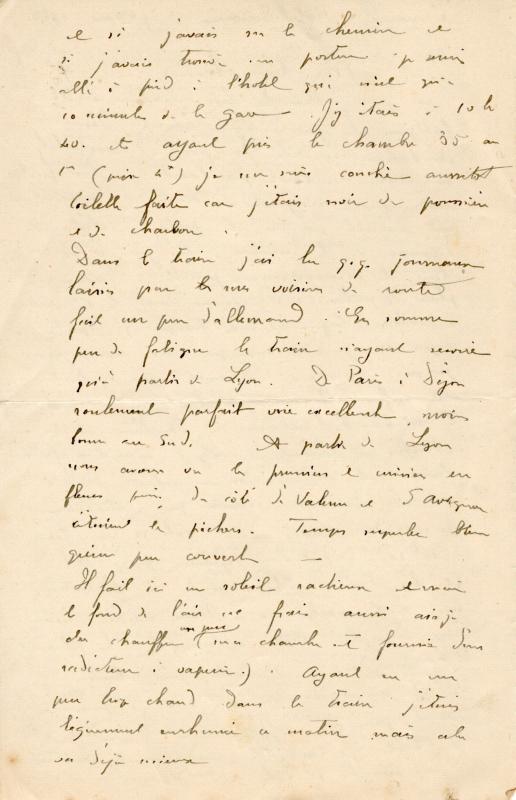 et si j'avais su le chemin et
si j'avais trouvé un porteur je serais
allé à pied à l'hôtel qui n'est qu'à
10 minutes de la gare. J'y étais à 10 h
40. et ayant pris la chambre 35 au
1er (prix 4f) je me suis couché aussitôt
toilette faite car j'étais noir de poussière
et de charbon.
Dans le train j'ai lu q.q. journaux
laissés par mes voisins de route
fait un peu d'allemand. En somme
peu de fatigue le train n'ayant secoué
qu'à partir de Lyon. De Paris à Dijon
roulement parfait voie excellente moins
bonne au Sud. A partir de Lyon
nous avons vu les pruniers et cerisiers en
fleurs puis du côté de Valence et d'Avignon
c'étaient les pêchers. Temps superbe bien
qu'un peu couvert —
Il fait ici un soleil radieux et
le fond de l'air est frais aussi ai-je
du chauffer un peu (ma chambre est fournie d'un
radiateur à vapeur.). Ayant eu un
peu trop chaud dans le train j'étais
légèrement enrhumé ce matin mais cela
va déjà mieux